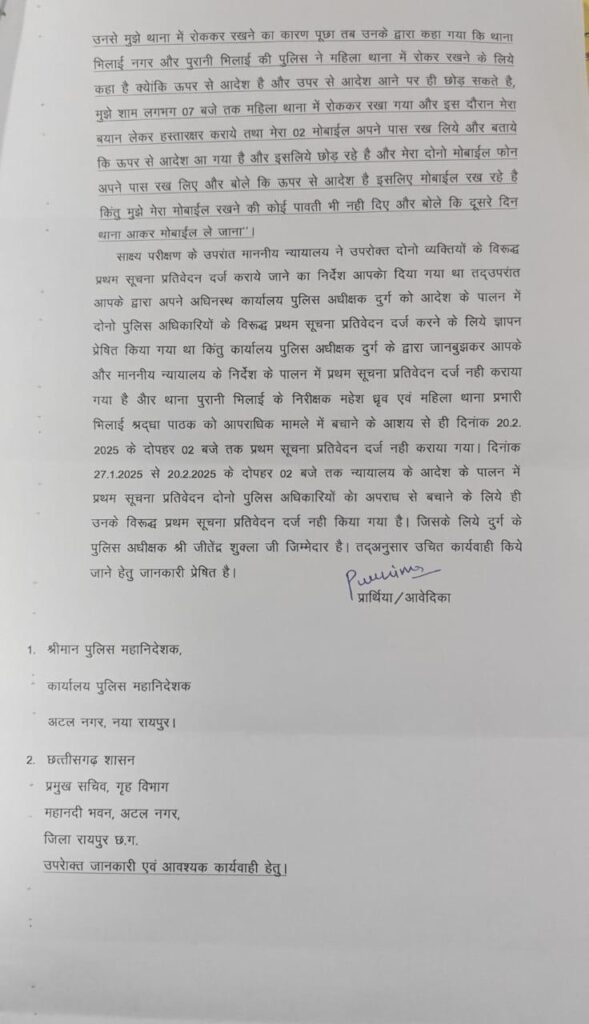 उनसे मुझे थाना में रोककर रखने का कारण पूछा तब उनके द्वारा कहा गया कि थाना
भिलाई नगर और पुरानी भिलाई की पुलिस ने महिला थाना में रोकर रखने के लिये
कहा है क्योंकि ऊपर से आदेश है और उपर से आदेश आने पर ही छोड़ सकते है,
मुझे शाम लगभग 07 बजे तक महिला थाना में रोककर रखा गया और इस दौरान मेरा
बयान लेकर हस्तारक्षर कराये तथा मेरा 02 मोबाईल अपने पास रख लिये और बताये
कि ऊपर से आदेश आ गया है और इसलिये छोड़ रहे है और मेरा दोनो मोबाईल फोन
अपने पास रख लिए और बोले कि ऊपर से आदेश है इसलिए मोबाईल रख रहे है
किंतु मुझे मेरा मोबाईल रखने की कोई पावती भी नही दिए और बोले कि दूसरे दिन
थाना आकर मोबाईल ले जाना''।
साक्ष्य परीक्षण के उपरांत माननीय न्यायालय ने उपरोक्त दोनो व्यक्तियों के विरूद्ध
प्रथम सूचना प्रतिवेदन दर्ज कराये जाने का निर्देश आपको दिया गया था तद्उपरांत
आपके द्वारा अपने अधिनस्थ कार्यालय पुलिस अधीक्षक दुर्ग को आदेश के पालन में
दोनो पुलिस अधिकारियों के विरूद्ध प्रथम सूचना प्रतिवेदन दर्ज करने के लिये ज्ञापन
प्रेषित किया गया था किंतु कार्यालय पुलिस अधीक्षक दुर्ग के द्वारा जानबुझकर आपके
और माननीय न्यायालय के निर्देश के पालन में प्रथम सूचना प्रतिवेदन दर्ज नही कराया
गया है और थाना पुरानी भिलाई के निरीक्षक महेश ध्रृव एवं महिला थाना प्रभारी
भिलाई श्रद्धा पाठक को आपराधिक मामले में बचाने के आशय से ही दिनांक 20.2.
2025 के दोपहर 02 बजे तक प्रथम सूचना प्रतिवेदन दर्ज नही कराया गया। दिनांक
27.1.2025 से 20.2.2025 के दोपहर 02 बजे तक न्यायालय के आदेश के पालन में
प्रथम सूचना प्रतिवेदन दोनो पुलिस अधिकारियों को अपराध से बचाने के लिये ही
उनके विरूद्ध प्रथम सूचना प्रतिवेदन दर्ज नही किया गया है। जिसके लिये दुर्ग के
पुलिस अधीक्षक श्री जीतेंद्र शुक्ला जी जिम्मेदार है। तद्अनुसार उचित कार्यवाही किये
जाने हेतु जानकारी प्रेषित है।
प्रार्थिया/आवेदिका
1. श्रीमान पुलिस महानिदेशक,
कार्यालय पुलिस महानिदेशक
अटल नगर, नया रायपुर।
2. छत्तीसगढ़ शासन
प्रमुख सचिव, गृह विभाग
महानदी भवन, अटल नगर,
जिला रायपुर छ.ग.
उपरोक्त जानकारी एवं आवश्यक कार्यवाही हेतु।